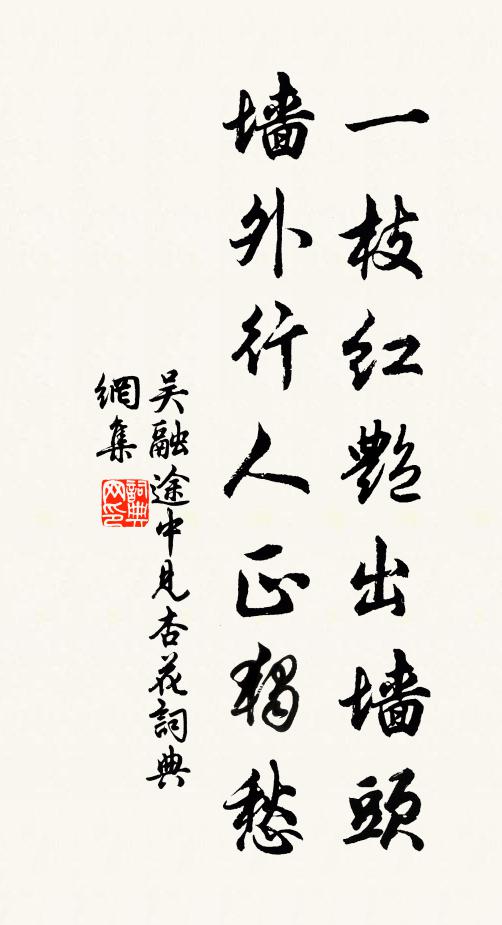 一枝红艷出墙頭
墙外行人正獨愁
吴融途中見杏花詞典
網集
詞典
网印